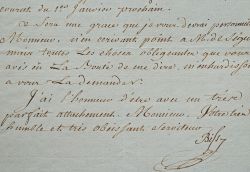 courant du 1er Janvier prochain.
Sera une grace que je vous devrai
Monsieur, en écrivant point a Mr. de
mais toutes Les choses obligeantes que vous
avis en La Bonté de me dire,
a vous La demander.
J'ai l'honneur d'etre avec un trèsr
parfait attachement, Monsieur, Votre tres
humble et très obeissant serviteur